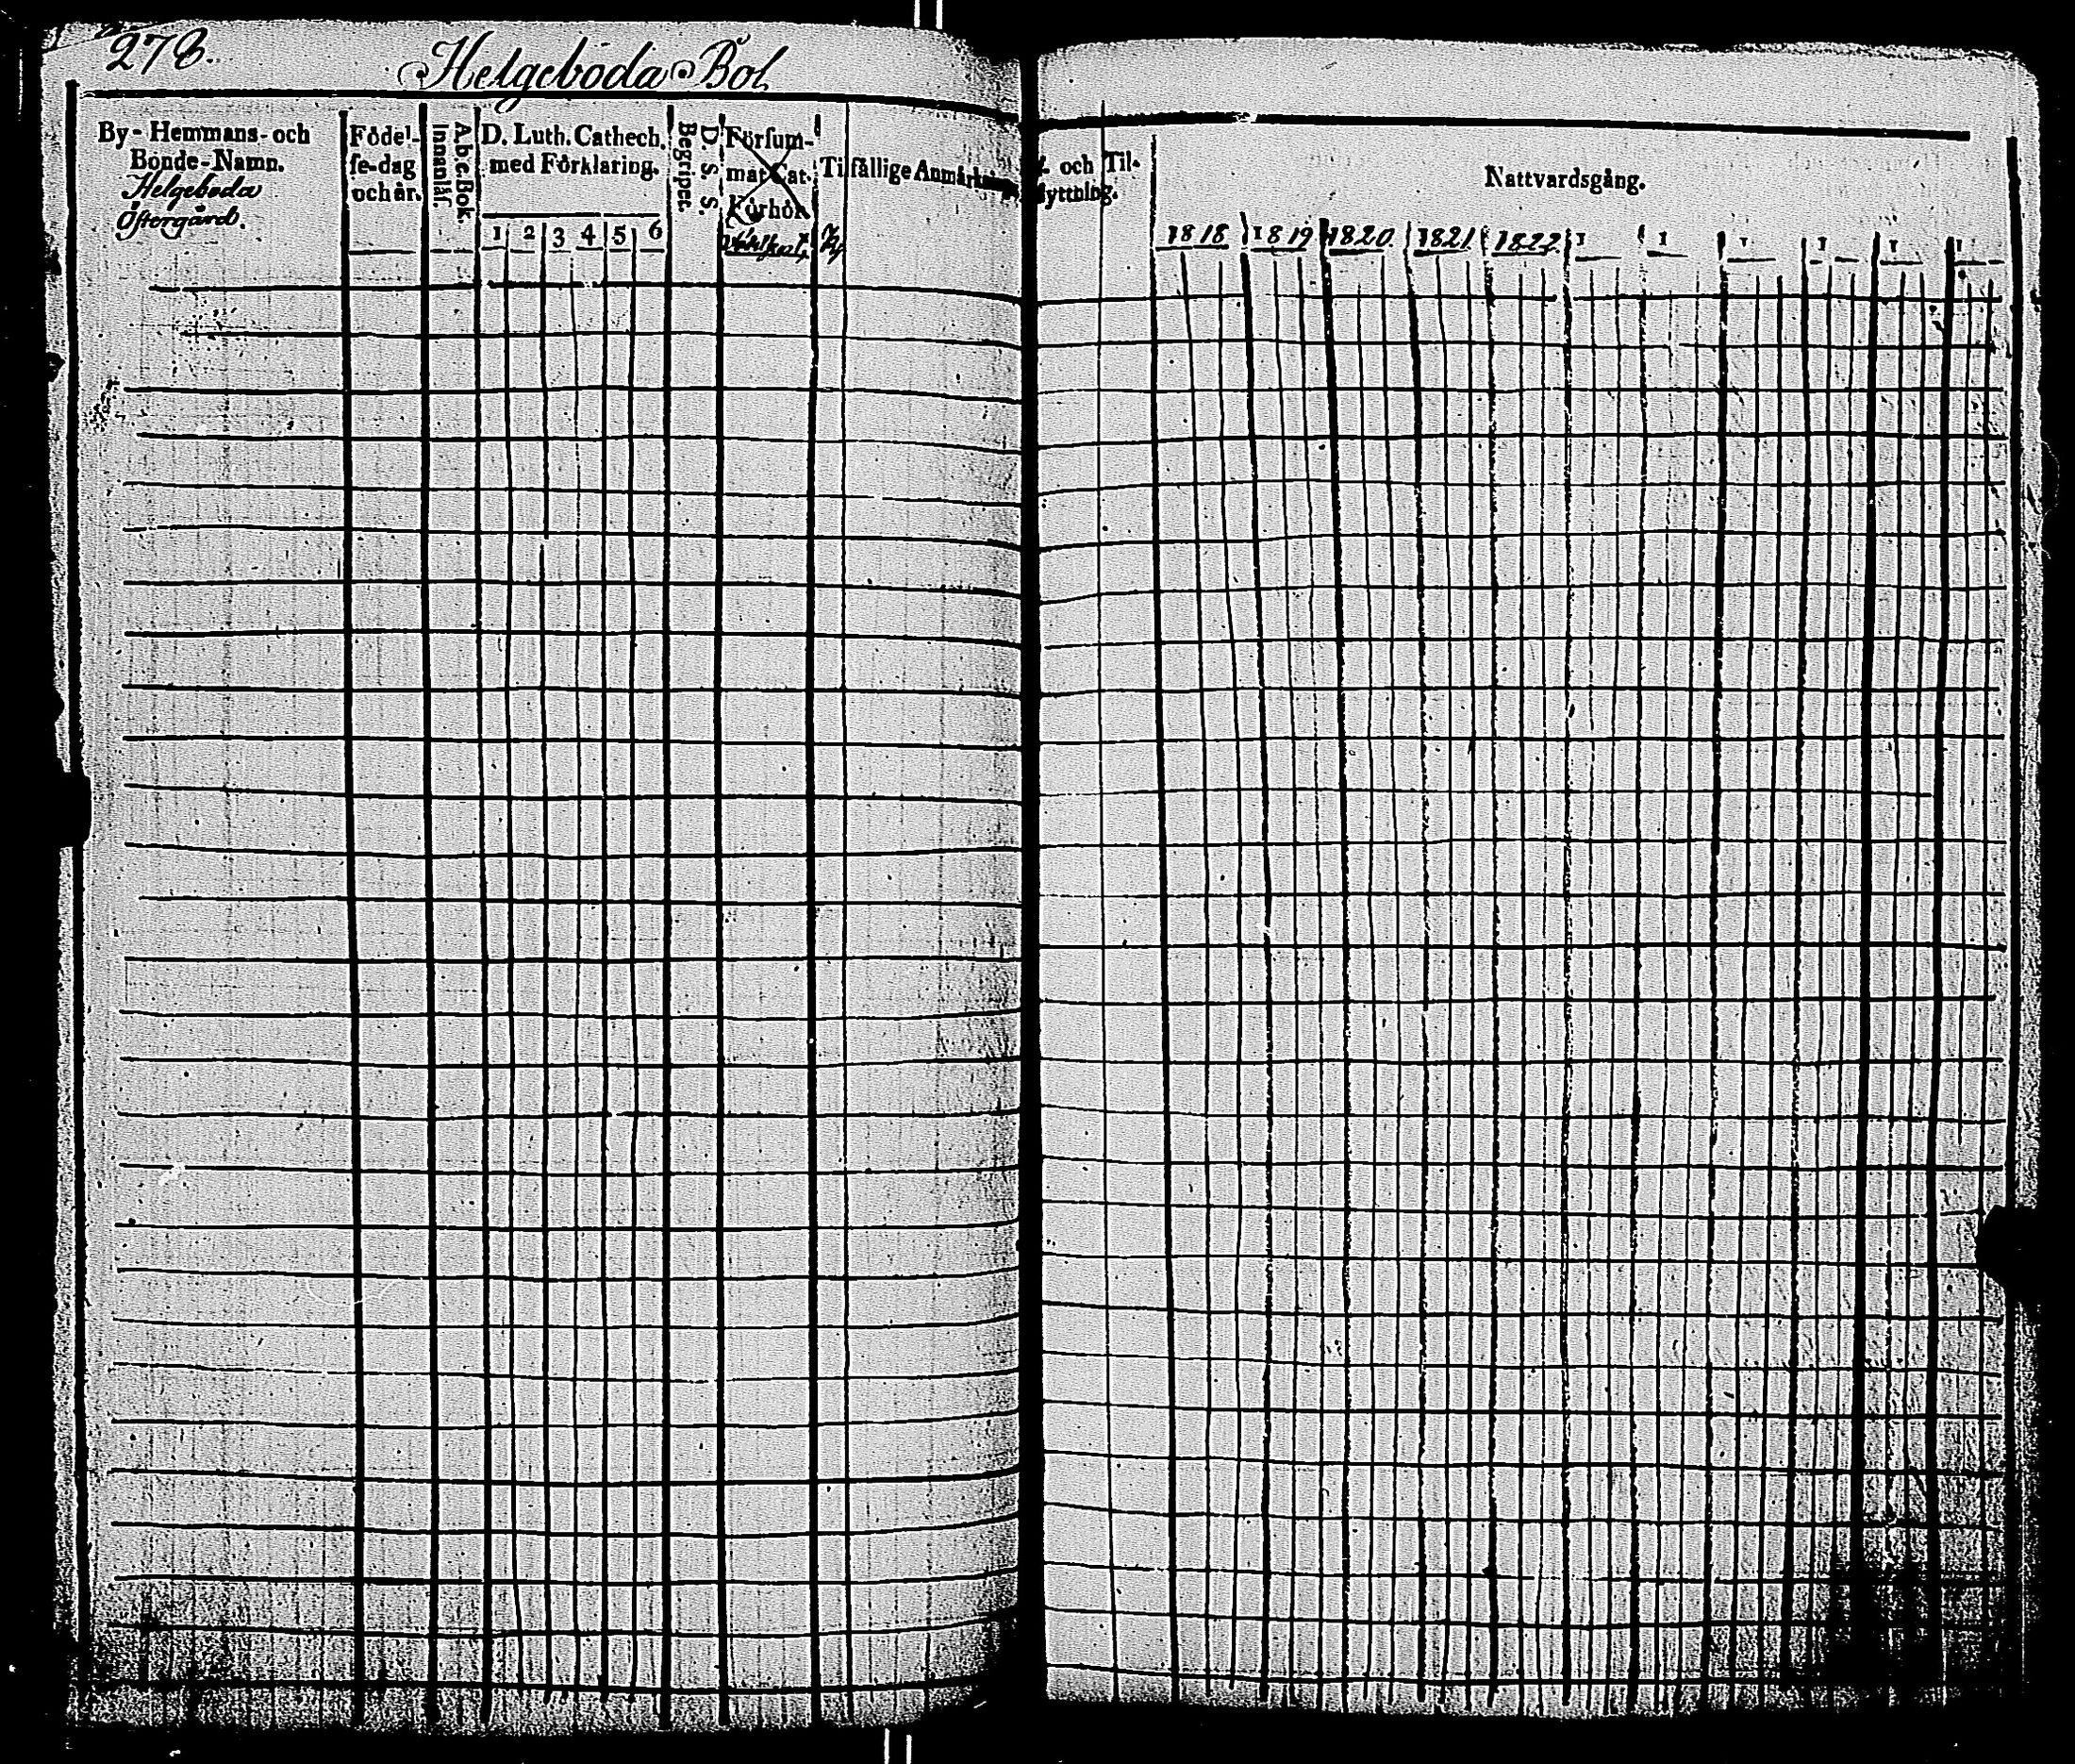 278.
Helgeboda Bol
By- Hemmans- och
Bonde-Namn.
Helgeboda
Östergård.
Födel-
se-dag
och år.
A.b.c.Bok.
Innanläs.
D. Luth. Cathech.
med Förklaring.
1 2 3 4 5 6
D. S. S.
Begriper.
Försum-
mat Cat.
Förhör.
Tilfällige Anmärkn
och Til-
yttning.
Nattvardsgång.
1818 1819 1820. 1821. 1822. 1 1 1 1 1 1